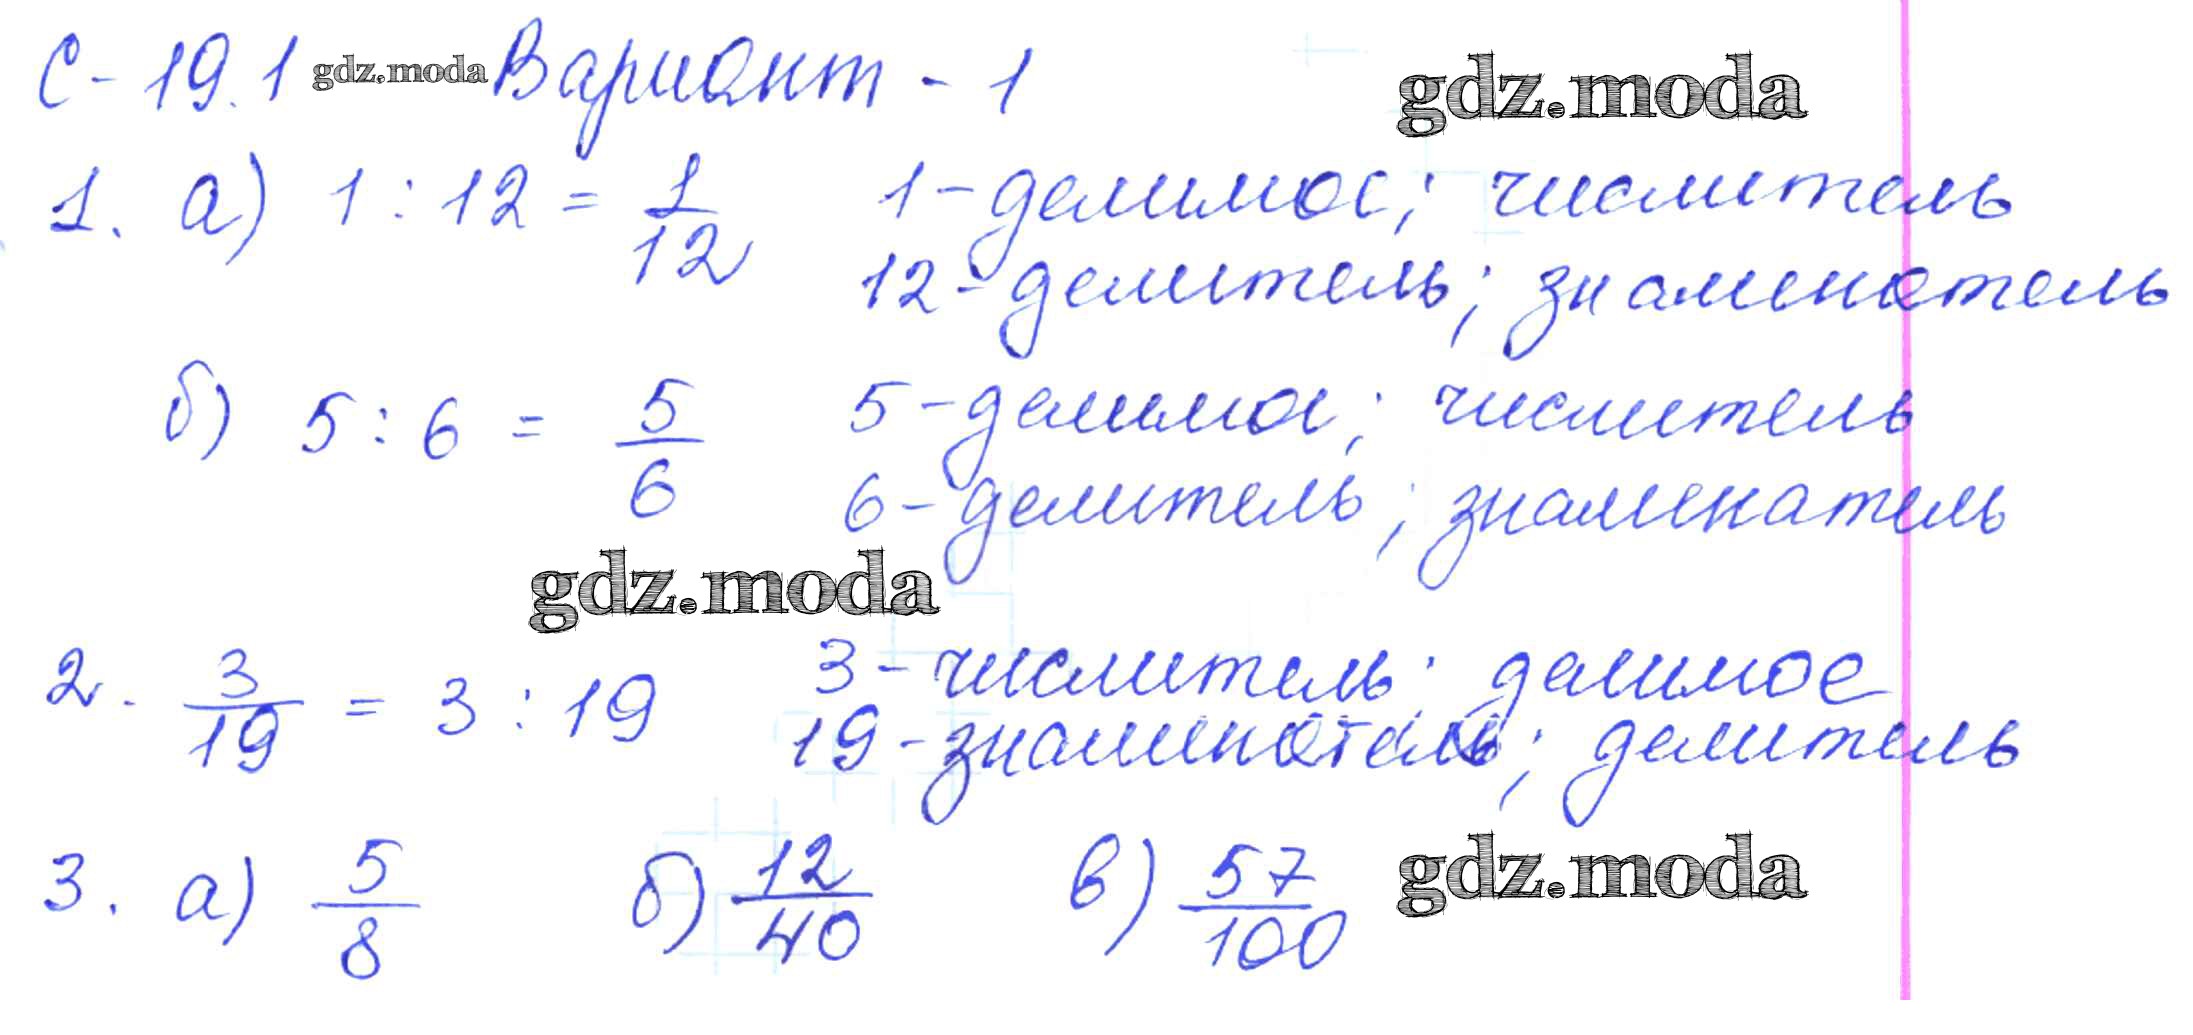 С-19.1 gdz.moda Вариант - 1 gdz.moda
1. а) 1 : 12 = 1/12 1 - делимое; числитель
12 - делитель; знаменатель
б) 5 : 6 = 5/6 5 - делимое; числитель
6 - делитель; знаменатель
gdz.moda
2. 3/19 = 3 : 19 3 - числитель; делимое
19 - знаменатель; делитель
3. а) 5/8 б) 12/40 в) 57/100 gdz.moda